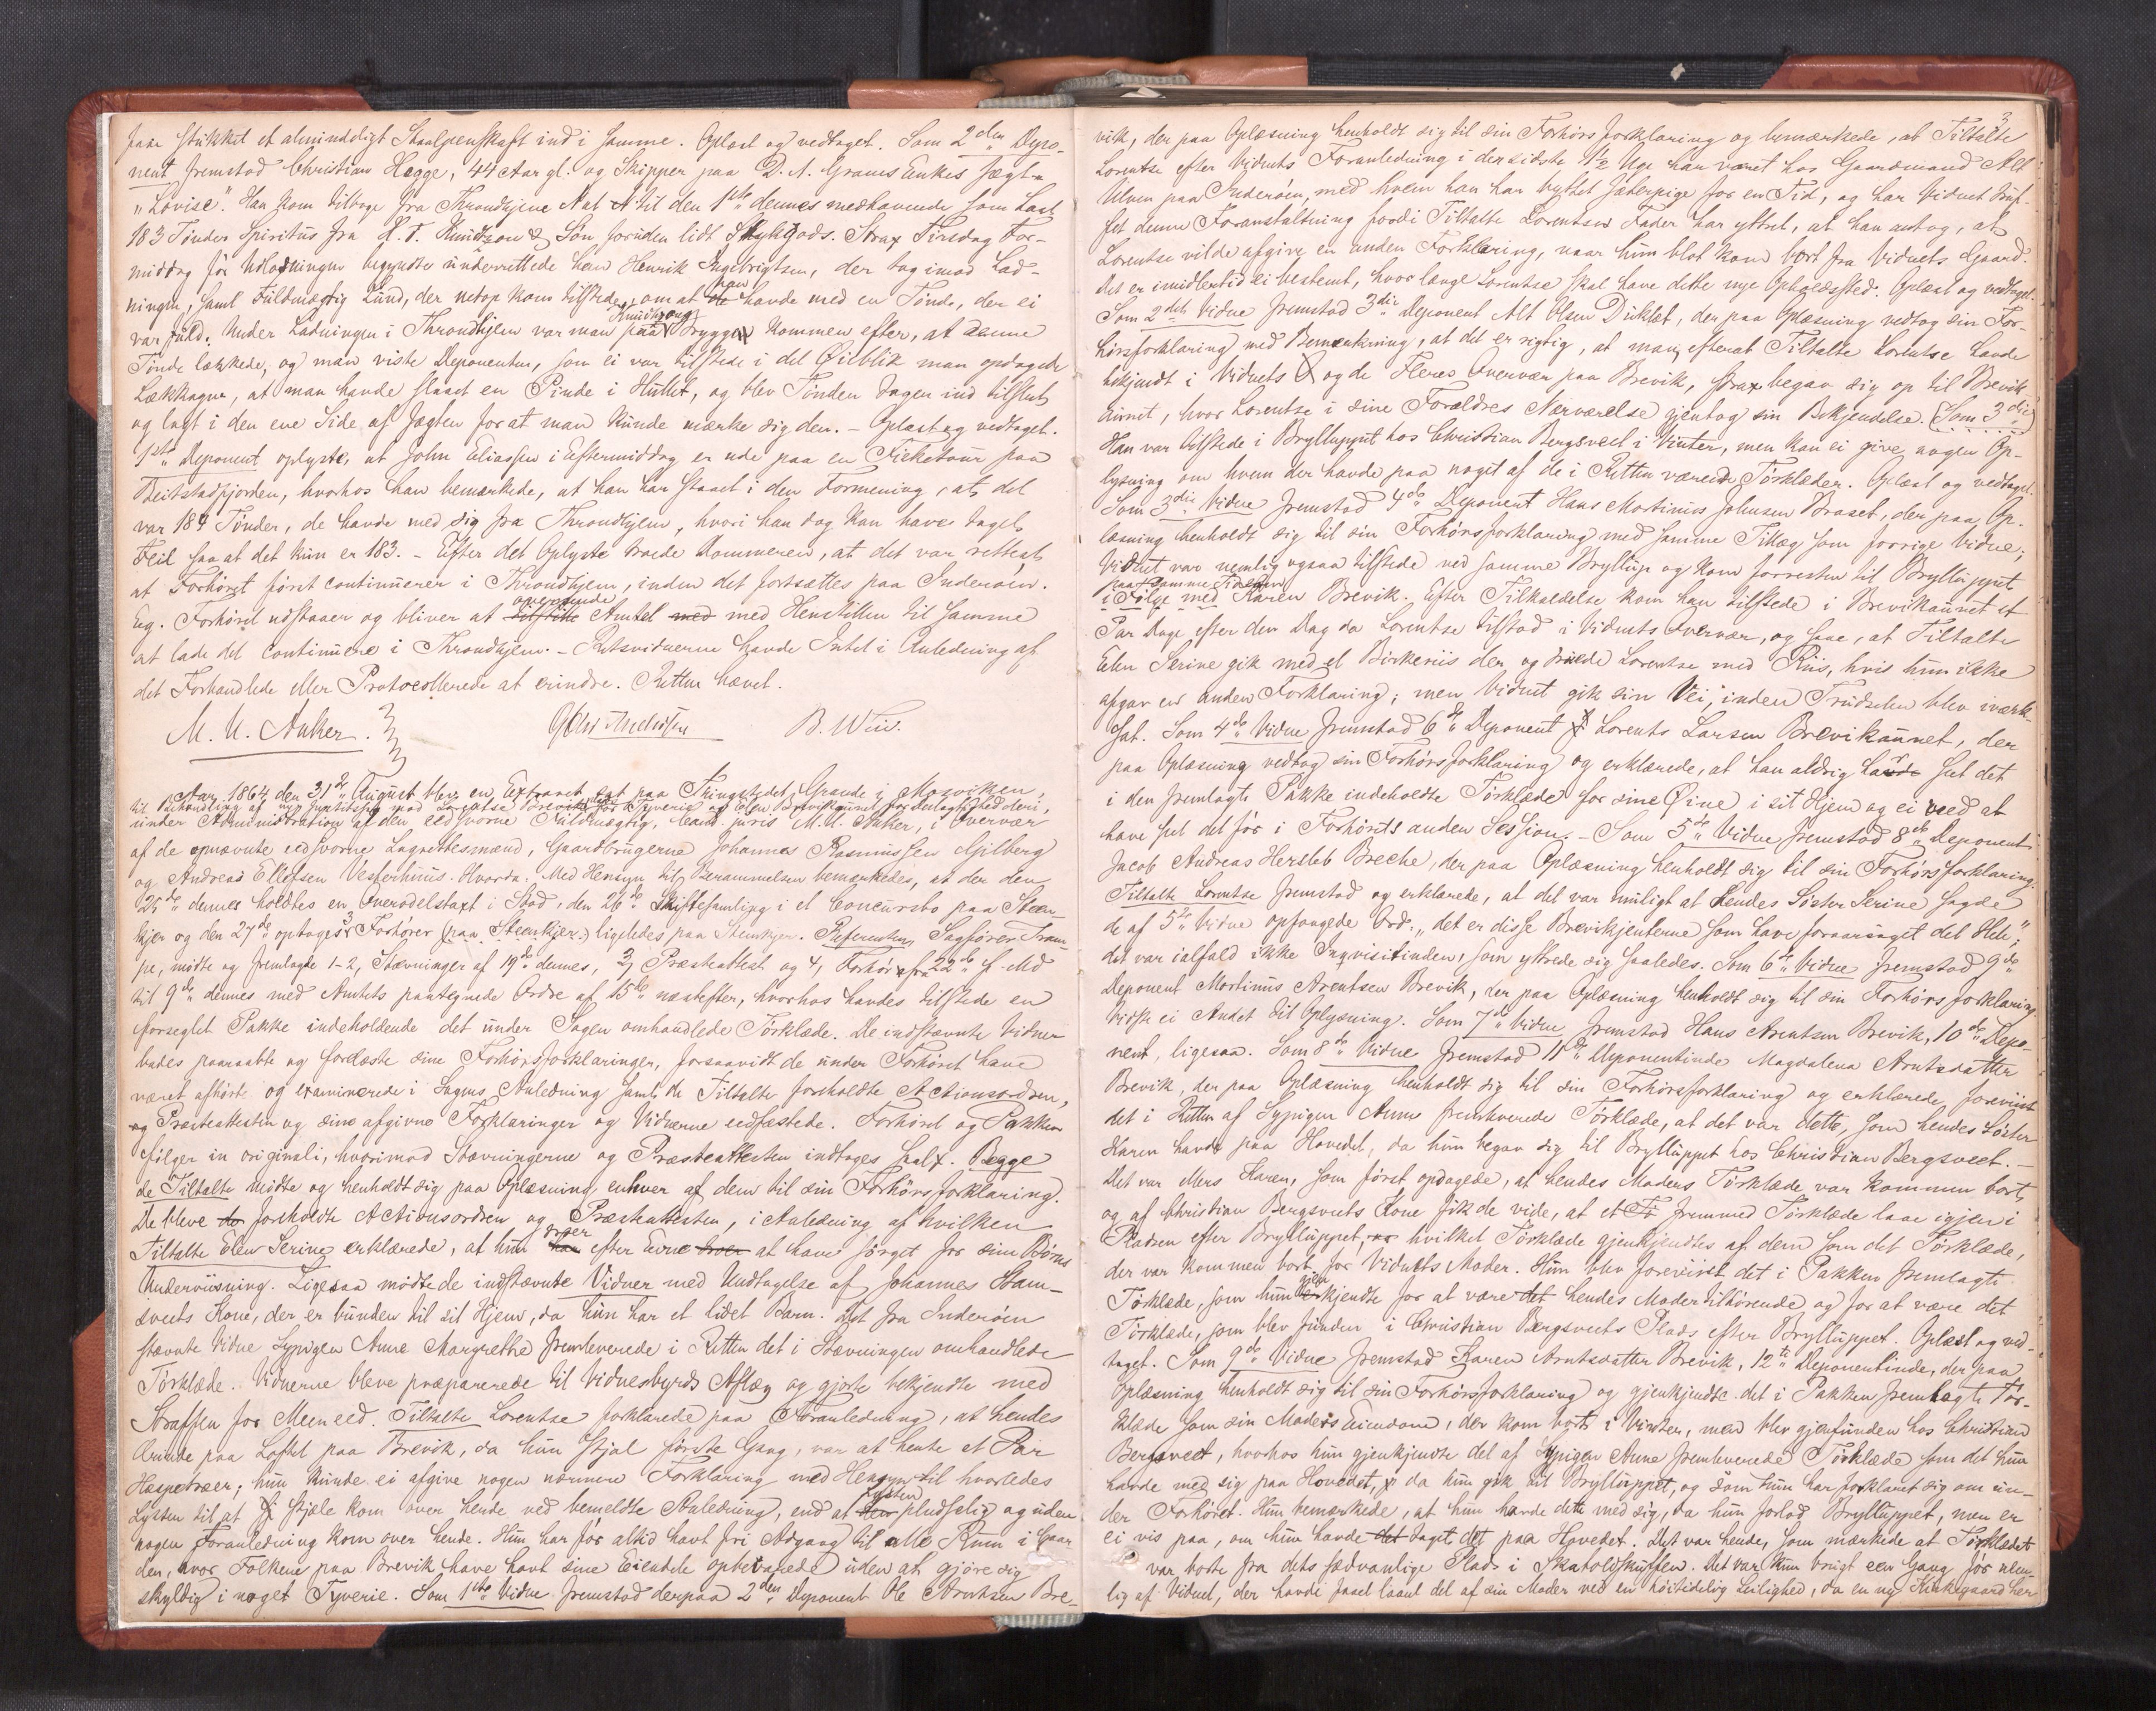 faae stukket et almindeligt Staalpenskaft ind i samme. Oplæst og vedtaget. Som 2den Depo-
nent fremstod Christian Hegge, 44 Aar gl. og Skipper paa D. A. Grams Enkes Jægt
"Lovise". Han kom tilbage fra Throndhjem Nat til den 1ste dennes medhavende som Last
183 Tønder Spiritus fra H. F. Knudtzon & Søn foruden lidt Stykgods. Strax Tirsdag For-
middag før Udlosningen begyndte underrettede han Henrik Ingebrigtsen, der tog imod Lad-
ningen, samt Fuldmægtig Lund, der netop kom tilstede, om at han havde med en Tønde, der ei
var fuld. Under Ladningen i Throndhjem var man paa Knudtzons Brygge kommen efter, at denne
Tønde lækkede, og man viste Deponenten, som ei var tilstede i det Øieblik man opdagede
Lækkagen, at man havde slaaet en Pinde i Hullet, og blev Tønden tagen ind tilsidst
og lagt i den ene Side af Jagten for at man kunde mærke sig den. - Oplæst og vedtaget.
1ste Deponent oplyste, at John Eliassen i Eftermiddag er ude paa en Fisketour paa
Beitstadfjorden, hvorhos han bemærkede, at han har staaet i den Formening, at det
var 184 Tønder, de havde med sig fra Throndhjem, hvori han dog kan have taget
Feil saa at det kun er 183. - Efter det Oplyste troede Dommeren, at det var rettest
at Forhøret først continuerer i Throndhjem, inden det fortsættes paa Inderøen.
Eg. Forhøret udstaaer og bliver at oversende Amtet med Henstillen til samme
at lade det continuere i Throndhjem. - Retsvidnerne havde Intet i Anledning af
det Forhandlede eller Protocollerede at erindre. Retten hævet.
M. U. Anker. Ole Andersen B. Wiis.
Aar 1864 den 31te August blev en Extraret sat paa Thingstedet Grande i Mosviken
til Behandling af en Justitssag mod Lorentse Brevik for Tyverie og Elen Brevikaunet for Delagtighed deri,
under Administration af den eedsvorne Fuldmægtig, Cand. juris M. U. Anker, i Overvær
af de opnævnte eedsvorne Lagrettesmænd, Gaardbrugerne Johannes Rasmussen Gilberg
og Andreas Ellefsen Vesterhuus. Hvorda: Med Hensyn til Berammelsen bemærkedes, at der den
25de dennes holdtes en Overodelstaxt i Stod, den 26de Skiftesamling i et Concursbo paa Steen-
kjer og den 27de optoges 3 Forhører (paa Steenkjer) ligeledes paa Steenkjer. Referenten Sagfører Tram-
pe, mødte og fremlagde 1-2, Stævninger af 19de dennes, 3, Præsteattest og 4, Forhør fra 22de f. Md
til 9de dennes med Amtets paategnede Ordre af 15de næstefter, hvorhos havdes tilstede en
forseglet Pakke indeholdende det under Sagen omhandlede Tørklæde. De indstævnte Vidner
bades paaraabte og forelæste sine Forhørsforklaringer, forsaavidt de under Forhøret have
været afhørte og examinerede i Sagens Anledning samt de Tiltalte foreholdte Actionsordren,
og Præsteattesten og sine afgivne Forklaringer og Vidnerne eedfæstede. Forhøret og Pakken
følger in originali, hvorimod Stævningerne og Præsteattesten indtages saal. Begge
de Tiltalte mødte og henholdt sig paa Oplæsning, enhver af dem til sin Forhørsforklaring.
De bleve foreholdte Actionsordren og Præsteattesten, i Anledning af hvilken
Tiltalte Elen Serine erklærede, at hun troer efter Evne at have sørget for sine Børns
Underviisning. Ligesaa mødte de indstævnte Vidner med Undtagelse af Johannes Stam-
sveets Kone, der er bunden til sit Hjem, da hun har et lidet Barn. Det fra Inderøen
stævnte Vidne Sypigen Anne Margrethe fremleverede i Retten det i Stævningen omhandlede
Tørklæde. Vidnerne bleve præparerede til Vidnesbyrds Aflæg og gjorte bekjendte med
Straffen for Meeneed. Tiltalte Lorentse forklarede paa Foranledning, at hendes
Ærinde paa Loftet paa Brevik, da hun stjal første Gang, var at hente et Par
Haspetræer; hun kunde ei afgive nogen nærmere Forklaring med Hensyn til hvorledes
Lysten til at stjæle kom over hende ved bemeldte Anledning, end at Lysten pludselig og uden
nogen Foranledning kom over hende. Hun har før altid havt fri Adgang til alle Rum i Gaar-
den, hvor Folkene paa Brevik have havt sine Eiendele opbevarede uden at gjøre sig
skyldig i noget Tyverie. Som 1ste Vidne fremstod derpaa 2den Deponent Ole Arntsen Bre-
3
vik, der paa Oplæsning henholdt sig til sin Forhørsforklaring og bemærkede, at Tiltalte
Lorentse efter Vidnets Foranledning i de sidste 1½ Uge har været hos Gaardmand Alt
Ulven paa Inderøen, med hvem han har byttet Sæterpige for en Tid, og har Vidnet truf-
fet denne Foranstaltning fordi Tiltalte Lorentses Fader har yttret, at han antog, at
Lorentse vilde afgive en anden Forklaring, naar hun blot kom bort fra Vidnets Gaard.
Det er imidlertid ei bestemt, hvor længe Lorentse skal have dette nye Opholdssted. Oplæst og vedtaget.
Som 2det Vidne fremstod 3die Deponent Alt Olsen Duklæt, der paa Oplæsning vedtog sin For-
hørsforklaring med Bemærkning, at det er rigtig, at man, efterat Tiltalte Lorentse havde
bekjendt i Vidnets og de Fleres Overvær paa Brevik, strax begav sig op til Brevik-
aunet, hvor Lorentse i sine Forældres Nærværelse gjentog sin Bekjendelse. (Som 3die)
Han var tilstede i Bryllupet hos Christian Bergsveet i Vinter, men kan ei give nogen Op-
lysning om hvem der havde paa noget af de i Retten værende Tørklæder. Oplæst og vedtaget.
Som 3die Vidne fremstod 4de Deponent Hans Mortinus Johnsen Braset, der paa Op-
læsning henholdt sig til sin Forhørsforklaring med samme Tillæg som forrige Vidne;
Vidnet var nemlig ogsaa tilstede ved samme Bryllup og kom forresten til Bryllupet
paa samme Tid som
i Følge med Karen Brevik. Efter Tilkaldelse kom han tilstede i Brevikaunet et
Par Dage efter den Dag da Lorentse tilstod i Vidnets Overvær, og saae, at Tiltalte
Elen Serine gik med et Birkeriis der og truede Lorentse med Riis, hvis hun ikke
afgav en anden Forklaring; men Vidnet gik sin Vei, inden Trudselen blev iværk-
sat. Som 4de Vidne fremstod 6te Deponent Lorents Larsen Brevikaunet, der
paa Oplæsning vedtog sin Forhørsforklaring og erklærede, at han aldrig har seet det
i den fremlagte Pakke indeholdte Tørklæde for sine Øine i sit Hjem og ei veed at
have seet det før i Forhørets anden Session. - Som 5te Vidne fremstod 8de Deponent
Jacob Andreas Herlleb Breche, der paa Oplæsning henholdt sig til sin Forhørsforklaring.
Tiltalte Lorentse fremstod og erklærede, at det var muligt at hendes Søster Serine sagde
de af 5te Vidne opfangede Ord: "det er disse Brevikjenterne som have foraarsaget det Hele";
det var ialfald ikke Inqvisitinden, som yttrede sig saaledes. Som 6te Vidne fremstod 9de
Deponent Mortinus Arentsen Brevik, der paa Oplæsning henholdt sig til sin Forhørsforklaring.
Vidste ei Andet til Oplysning. Som 7de Vidne fremstod Hans Arentsen Brevik, 10de Depo-
nent, ligesaa. Som 8de Vidne fremstod 11te Deponentinde Magdalena Arntsdatter
Brevik, der paa Oplæsning henholdt sig til sin Forhørsforklaring og erklærede, foreviist
det i Retten af Sypigen Anne fremleverede Tørklæde, at det var dette, som hendes Søster
Karen havde paa Hovedet, da hun begav sig til Bryllupet hos Christian Bergsveet. -
Det var ellers Karen, som først opdagede, at hendes Moders Tørklæde var kommen bort,
og af Christian Bergsveets Kone fik de vide, at et fremmed Tørklæde laae igjen i
Pladsen efter Bryllupet, hvilket Tørklæde gjenkjendtes af dem som det Tørklæde,
der var kommen bort for Vidnets Moder. Hun blev foreviist det i Pakken fremlagte
Tørklæde, som hun gjenkjendte for at være hendes Moder tilhørende og for at være det
Tørklæde, som blev funden i Christian Bergsveets Plads efter Bryllupet. Oplæst og ved-
taget. Som 9de Vidne fremstod Karen Arntsdatter Brevik, 12te Deponentinde, der paa
Oplæsning henholdt sig til sin Forhørsforklaring og gjenkjendte det i Pakken fremlagte Tør-
klæde som sin Moders Eiendom, der kom bort i Vinter, men blev gjenfunden hos Christian
Bergsveet, hvorhos hun gjenkjendte det af Sypigen Anne fremleverede Tørklæde som det hun
havde med sig paa Hovedet, da hun gik til Bryllupet, og som hun har forklaret sig om un-
der Forhøret. Hun bemærkede, at hun havde dette med sig, da hun forlod Bryllupet, men er
ei vis paa, om hun havde taget det paa Hovedet. Det var hende, som mærkede at Tørklædet
var borte fra dets sædvanlige Plads i Skatholdskuffen. Det var kun brugt een Gang før nem-
lig af Vidnet, der havde faaet laant det af sin Moder ved en høitidelig Leilighed, da en ny Kirkegaard her